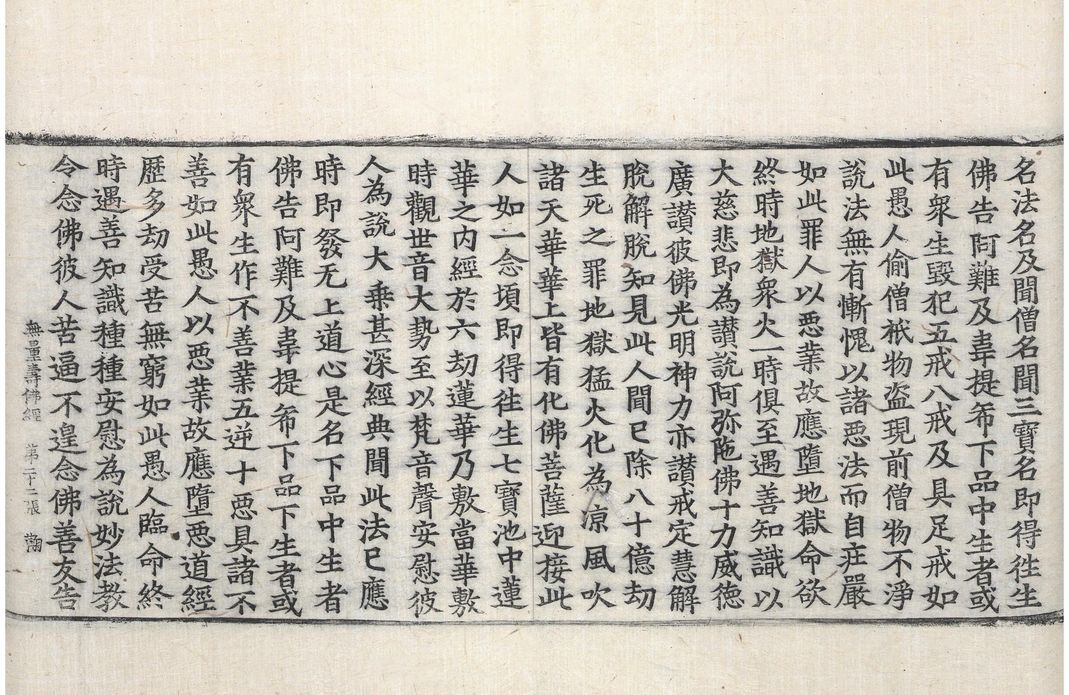 名法名及聞僧名聞三寶名即得徃生
佛告阿難及韋提希下品中生者或
有衆生毀犯五戒八戒及具足戒如
此愚人偷僧祇物盗現前僧物不淨
說法無有慚愧以諸惡法而自庄嚴
如此罪人以惡業故應墮地獄命欲
終時地獄衆火一時俱至遇善知識以
大慈悲即為讃說阿弥陁佛十力威徳
廣讃彼佛光明神力亦讃戒定慧解
脫解脫知見此人聞已除八十億劫
生死之罪地獄猛火化為凉風吹
諸天華華上皆有化佛菩薩迎接此
人如一念頃即得徃生七寶池中蓮
華之内經於六劫蓮華乃敷當華敷
時觀世音大勢至以梵音聲安慰彼
人為說大乗甚深經典聞此法已應
時即發无上道心是名下品中生者
佛告阿難及韋提希下品下生者或
有衆生作不善業五逆十惡具諸不
善如此愚人以惡業故應墮惡道經
歷多劫受苦無窮如此愚人臨命終
時遇善知識種種安慰為說妙法教
令念佛彼人苦逼不遑念佛善友告
無量壽佛經 第二十二張